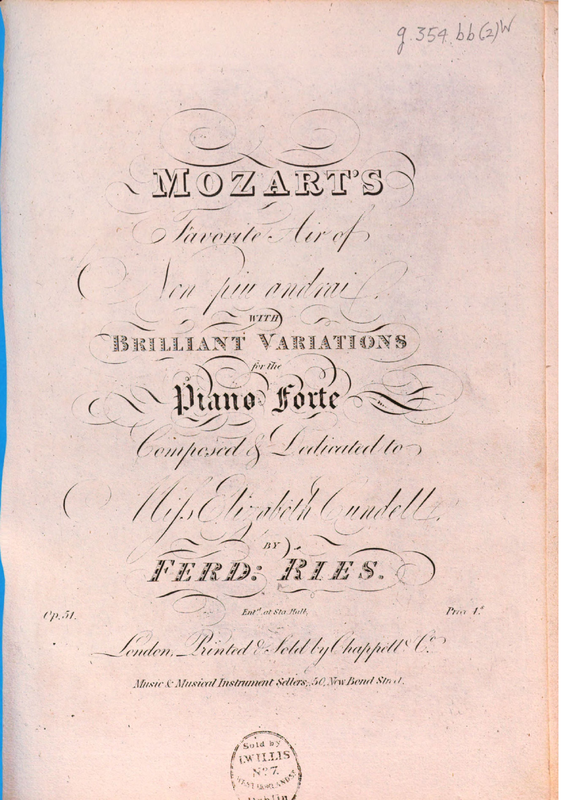 g.354.bb(2)W
MOZART'S
Favorite Air of
Non piu andrai,
WITH
BRILLIANT VARIATIONS
for the
Piano Forte
Composed & Dedicated to
Miſs Elizabeth Cundell,
BY
FERD: RIES.
Op. 51. Entd. at Sta. Hall,
London, Printed & Sold by Chappell & Co.
Music & Musical Instrument Sellers, 50, New Bond Street.
Sold by
I. WILLIS
No. 7.
Dublin